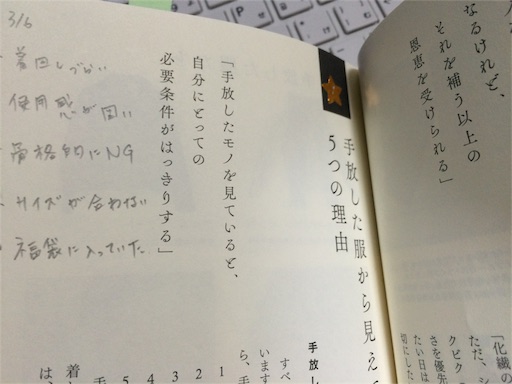 なるけれど、
それを補う以上の
恩恵を受けられる」
手放した服から見え
5つの理由
「手放したモノを見ていると、
自分にとっての
必要条件がはっきりする」
3/6
着回しづらい
使用感が
骨格的にNG
サイズが合わない
福袋に入っていた
「化繊の
ただ、
クビク
さを優先
たい日は
切にした
手放し
すべ
います
ら、手
1
2
3
4
5
手
着し
は、